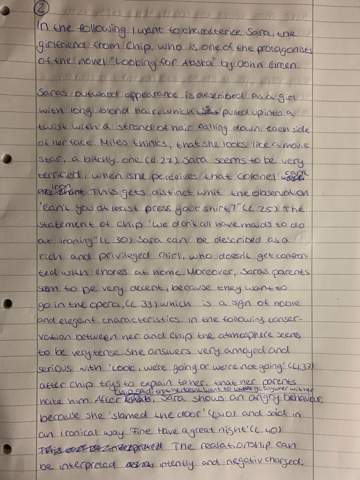 ②
In the following I want to characterice Sara, the
girlfriend from Chip, who is one of the protagonists
of the novel "Looking for Alaska" by John Green.
Saras outward appearance is described as a girl
with long blond haire which is pulled up into a
twist with a strand of hair falling down each side
of her face. Miles thinks, that she looks like a movie
star, a bitchy one (l. 22). Sara seems to be very
terrified, when she perceives that Colonel
iron This gets distinct whit the observation
"can't you at least press your shirt?" (l. 25). The
statement of Chip "We don't all have maids to do
at ironing" (l. 30). Sara can be described as a
rich and privileged Girl, who doesn't get confron
ted with chores at home. Moreover, Sara's parents
seem to be very decent, because they want to
go in the opera, (l. 33) which is a sign of noble
and elegant characteristics. In the following conser-
vation between her and Chip the atmosphere seems
to be very tense. She answers very annoyed and
serious with "Look, were going or we're not going" (l. 37)
after Chip trys to explain to her, that her parents
hate him. After Sara shows an angry behaviour
because she "slamed the door" (l. 40) and said in
an ironical way "Fine. Have a great night" (l. 40)
The realationship can
be interpreted intently and negativ charged.